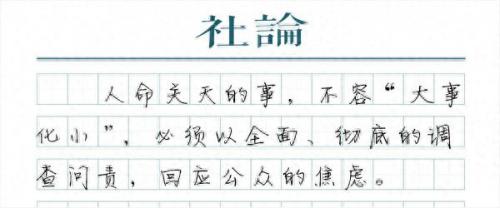 社論
人命关天的事，不容“大事
化小”，必须以全面、彻底的调
查问责，回应公众的焦虑。